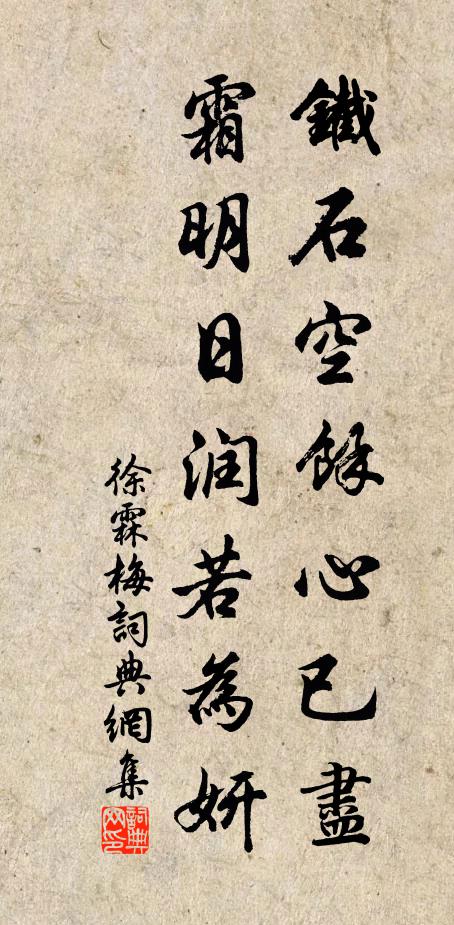 鐵石空餘心已盡
霜明日润若為妍
徐霖梅詞典網集
詞典网印